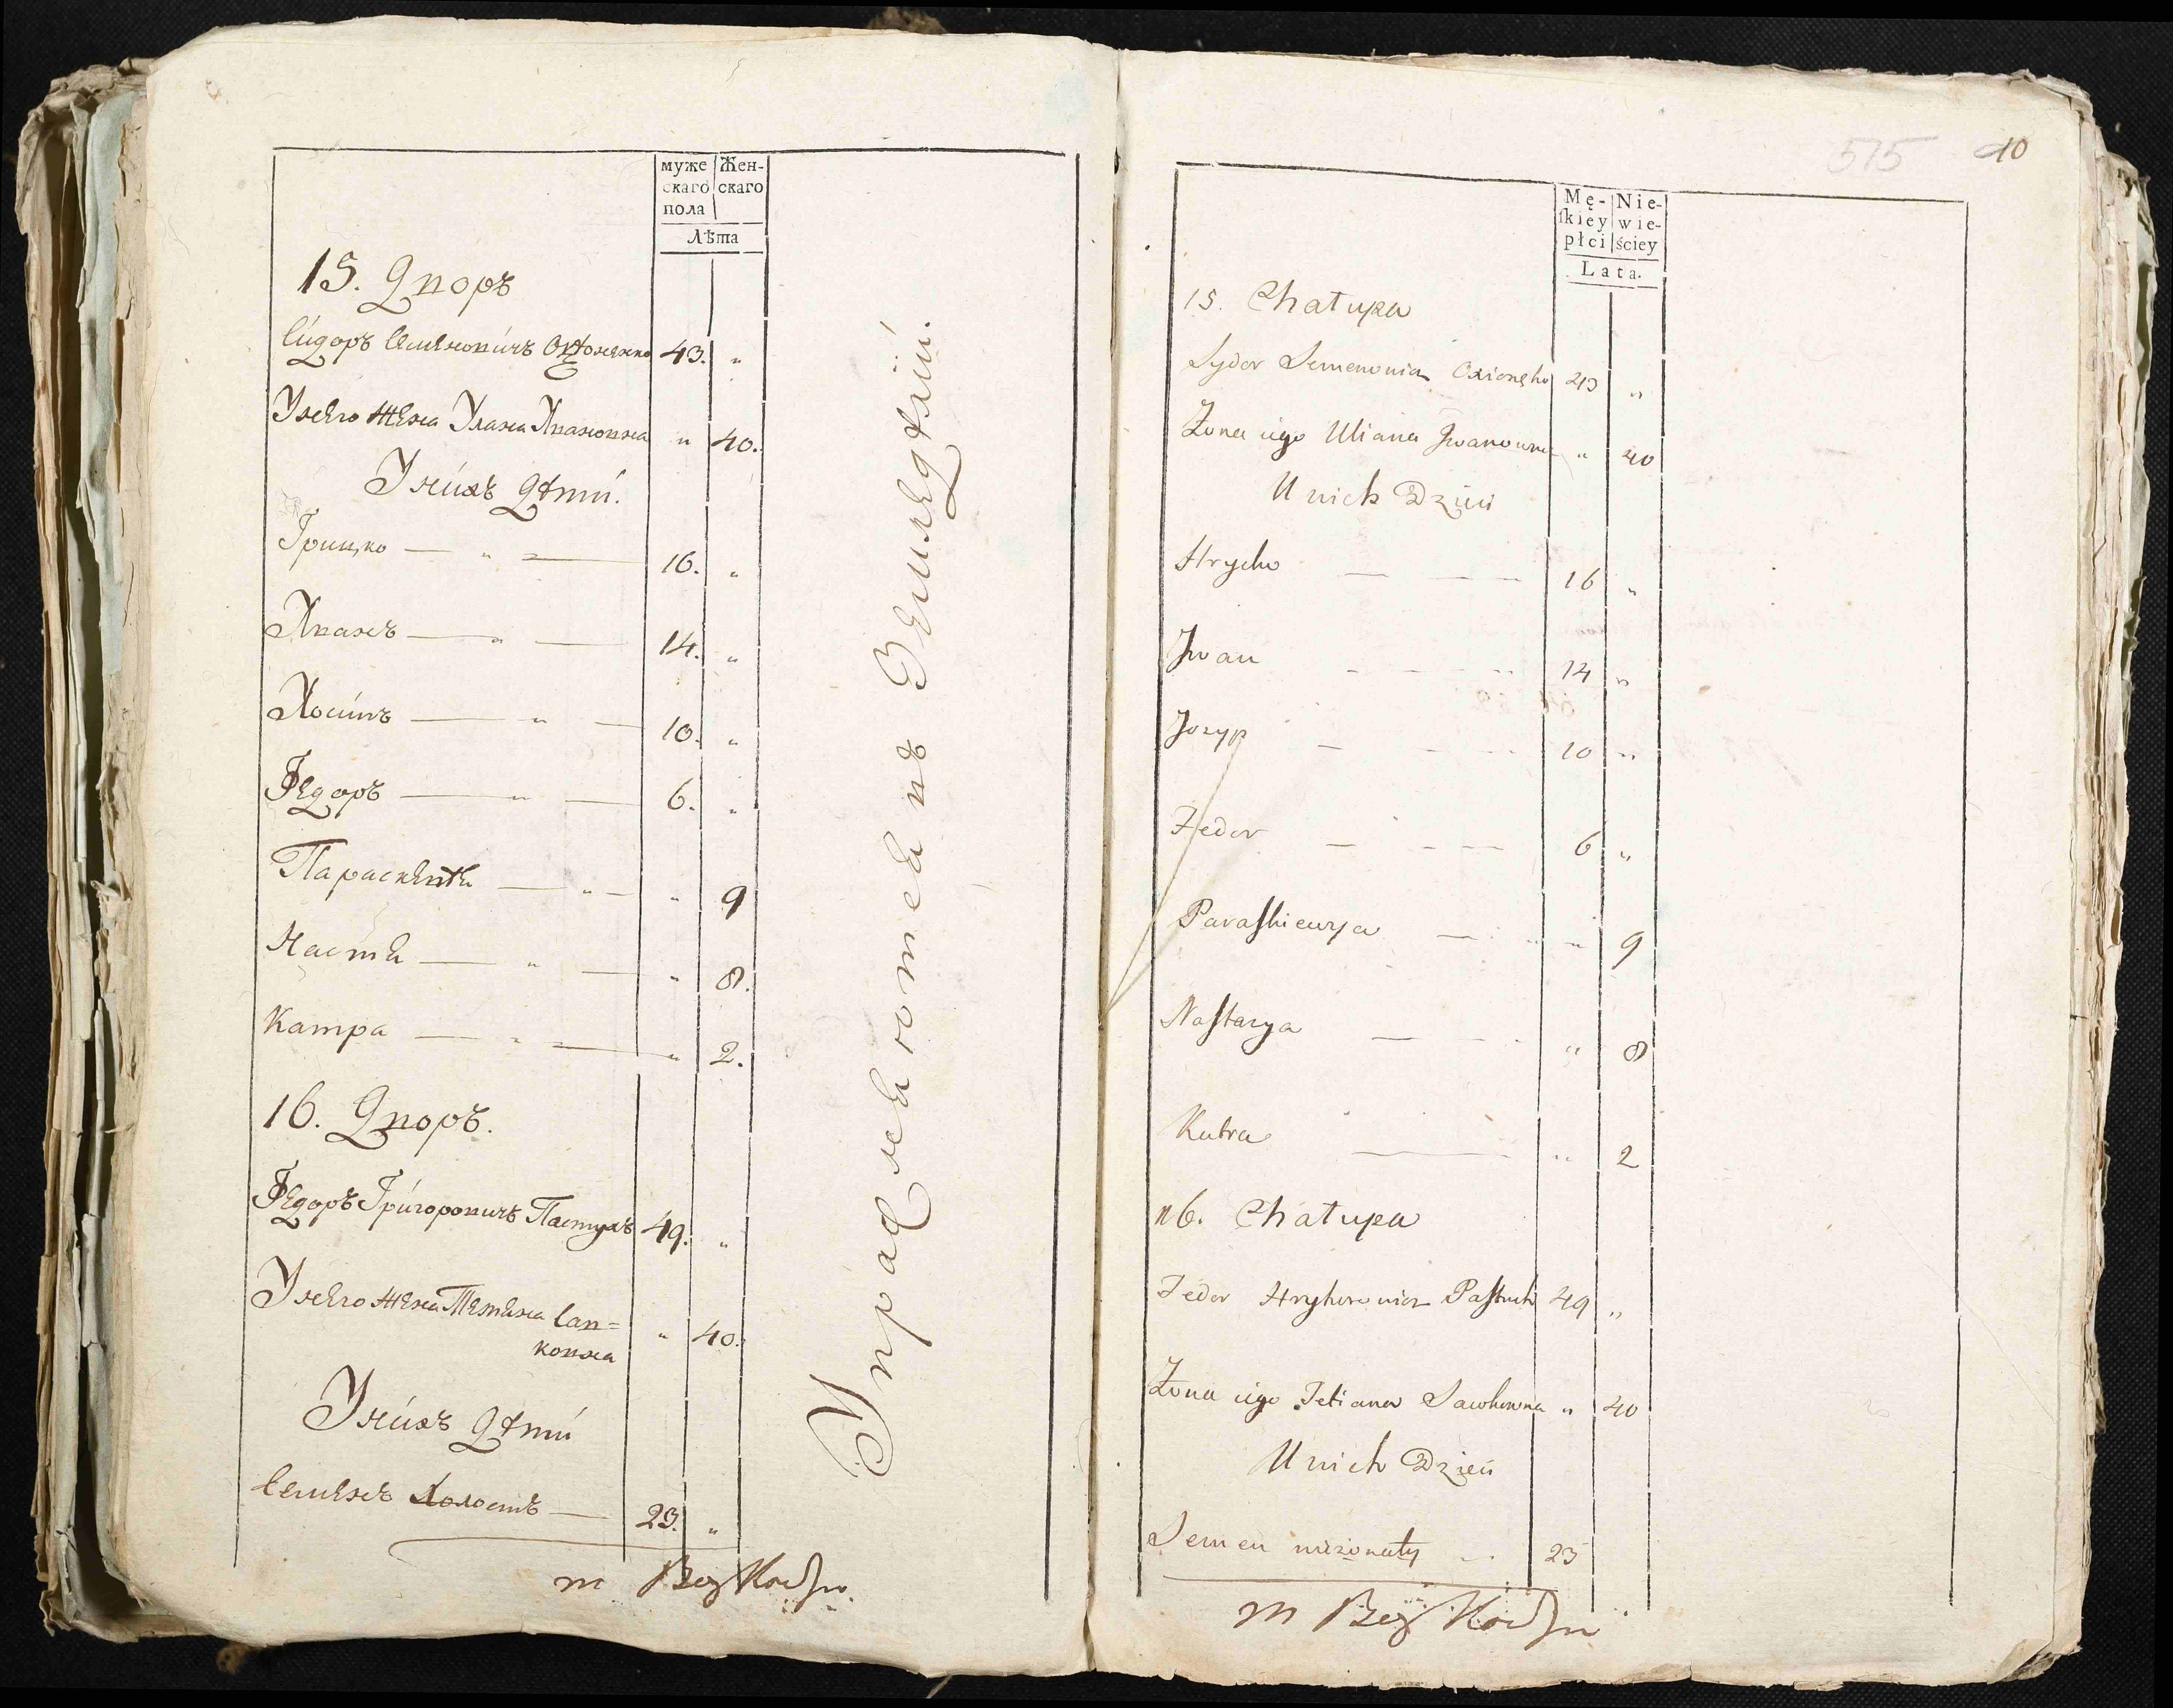 муже Жен-
скаго скаго
пола
Лѣта
15. Дворъ
Сидоръ Семеновичъ 43. „
Унего жена Уляна Ивановна „ 40.
Унихъ дѣти.
Грицко — „ — 16. „
Иванъ — „ — 14. „
Иосипъ — „ — 10. „
Федоръ — „ — 6. „
Параскевѣя — „ — „ 9
Настя — „ — „ 8.
Катра — „ — „ 2.
16. Дворъ.
Федоръ Григоровичъ Пастухъ 49. „
Унего жена Тетяна Сав=
ковна „ 40.
Унихъ дѣти
Семенъ Холостъ — 23. „
Упражняютея въ Земледѣлии.
515 10
Mę- Nie-
ſkiey wie-
płci ściey
Lata.
15. Chałupa
Sydor Semenowicz 43 „
Żona iego Uliana Jwanowna „ 40
U nich Dzieci
Hrycko — — — 16 „
Jwan 14 „
Jozyp — 10 „
Fedor — — — 6 „
Paraſkiewya — „ 9
Naſtazya — „ 8
Katra — „ 2
16. Chałupa
Fedor Hryhorowicz Paſtuch 49 „
Żona iego Tetiana Sawkowna „ 40
U nich Dzieci
Semen nieżonaty 23